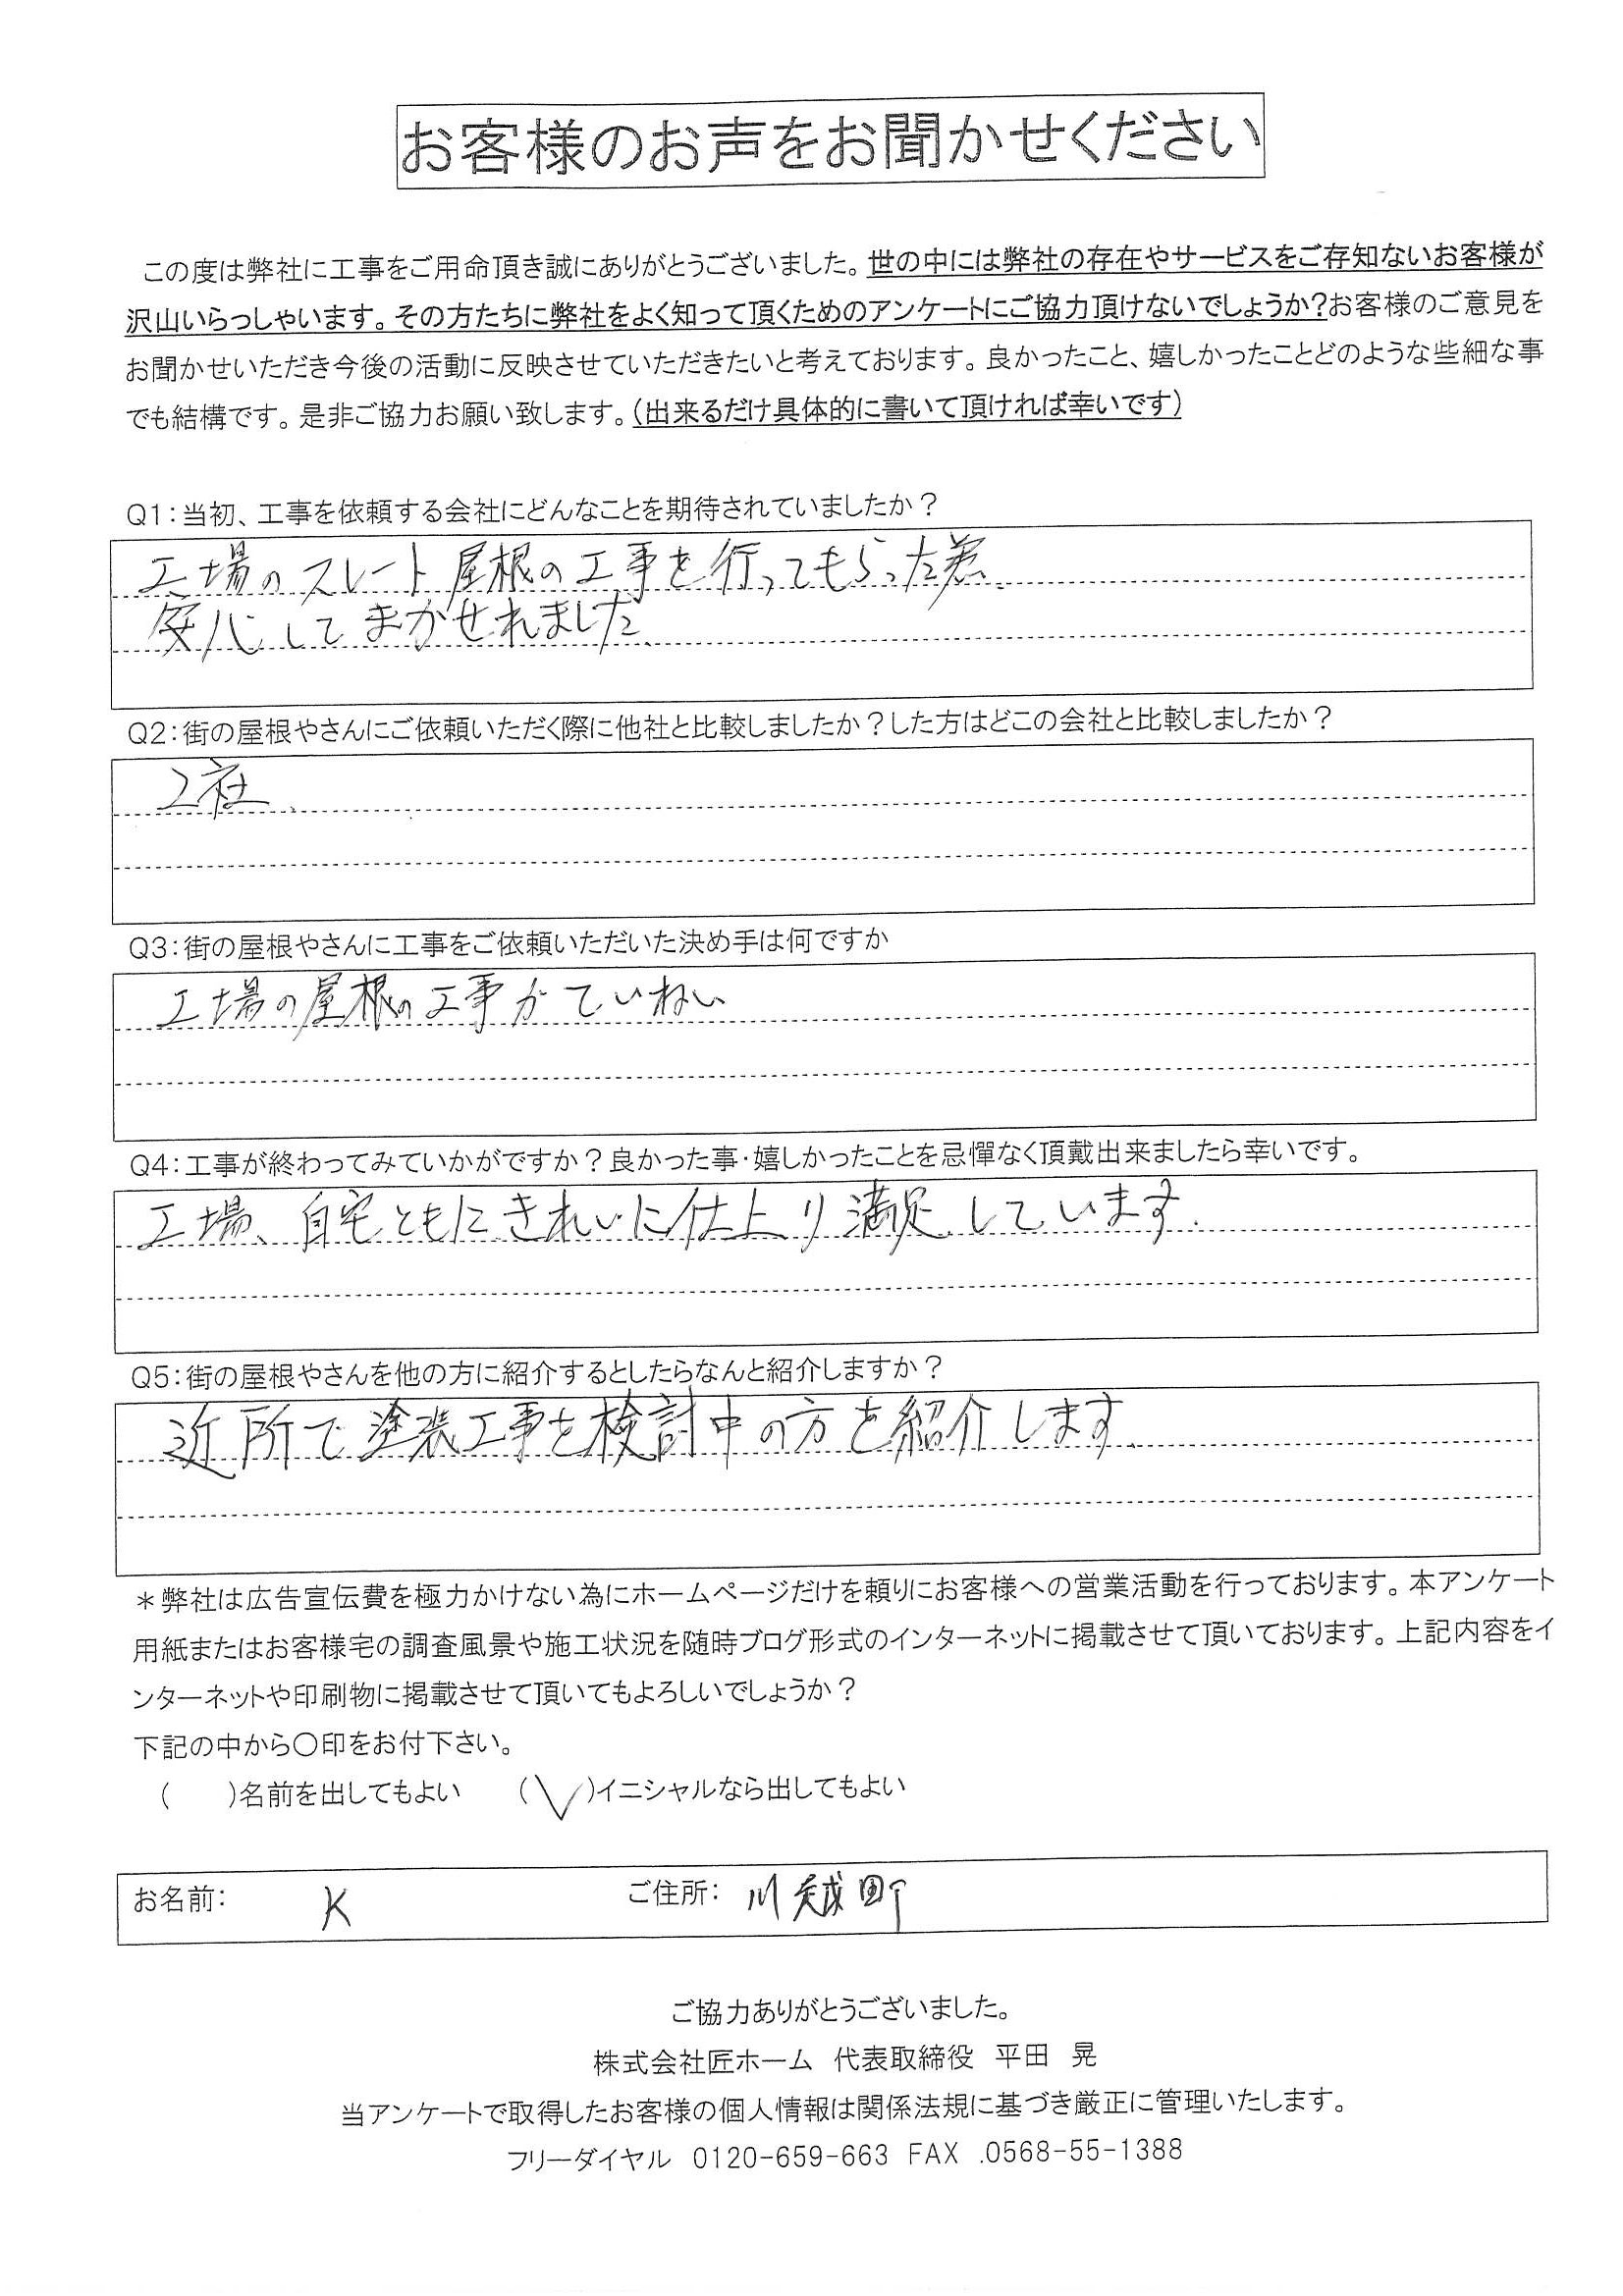 お客様のお声をお聞かせください
この度は弊社に工事をご用命頂き誠にありがとうございました。世の中には弊社の存在やサービスをご存知ないお客様が
沢山いらっしゃいます。その方たちに弊社をよく知って頂くためのアンケートにご協力頂けないでしょうか?お客様のご意見を
お聞かせいただき今後の活動に反映させていただきたいと考えております。良かったこと、嬉しかったことどのような些細な事
でも結構です。是非ご協力お願い致します。(出来るだけ具体的に書いて頂ければ幸いです)
Q1:当初、工事を依頼する会社にどんなことを期待されていましたか?
工場のスレート屋根の工事を行ってもらった為
安心してまかせれました
Q2:街の屋根やさんにご依頼いただく際に他社と比較しましたか?した方はどこの会社と比較しましたか?
2社
Q3:街の屋根やさんに工事をご依頼いただいた決め手は何ですか
工場の屋根の工事がていねい
Q4:工事が終わってみていかがですか?良かった事・嬉しかったことを忌憚なく頂戴出来ましたら幸いです。
工場、自宅ともにきれいに仕上り満足しています。
Q5:街の屋根やさんを他の方に紹介するとしたらなんと紹介しますか?
近所で塗装工事を検討中の方を紹介します
*弊社は広告宣伝費を極力かけない為にホームページだけを頼りにお客様への営業活動を行っております。本アンケート
用紙またはお客様宅の調査風景や施工状況を随時ブログ形式のインターネットに掲載させて頂いております。上記内容をイ
ンターネットや印刷物に掲載させて頂いてもよろしいでしょうか?
下記の中から〇印をお付下さい。
(　　)名前を出してもよい　　(✓)イニシャルなら出してもよい
お名前: K ご住所: 川越町
ご協力ありがとうございました。
株式会社匠ホーム 代表取締役 平田 晃
当アンケートで取得したお客様の個人情報は関係法規に基づき厳正に管理いたします。
フリーダイヤル 0120-659-663 FAX .0568-55-1388